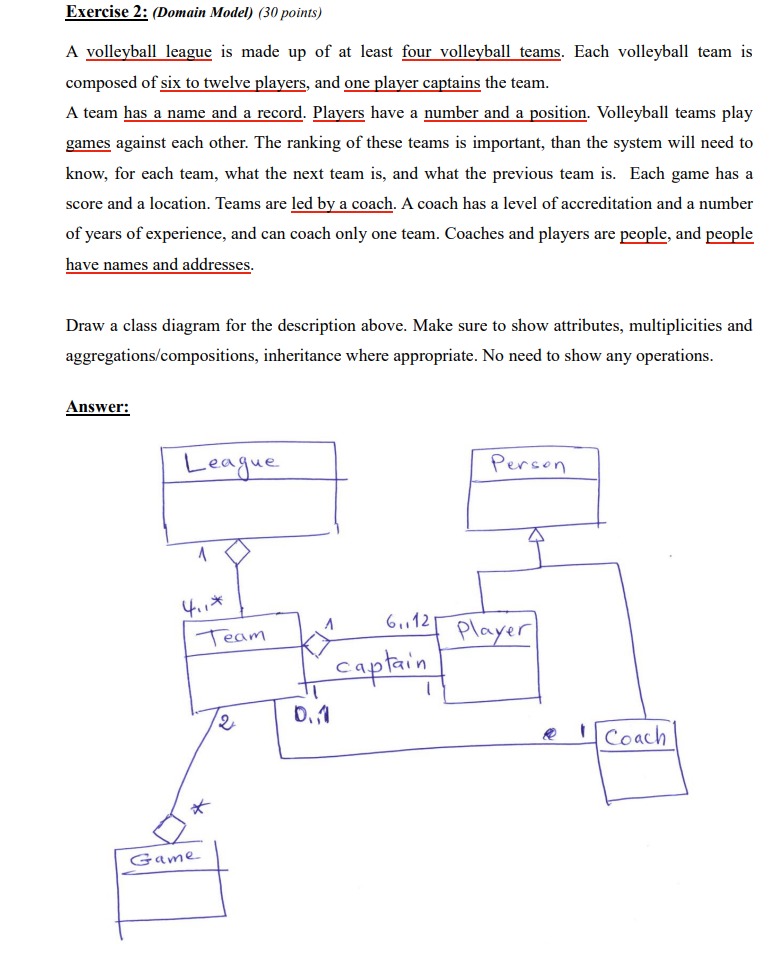 Exercise 2: (Domain Model) (30 points)
A volleyball league is made up of at least four volleyball teams. Each volleyball team is
composed of six to twelve players, and one player captains the team.
A team has a name and a record. Players have a number and a position. Volleyball teams play
games against each other. The ranking of these teams is important, than the system will need to
know, for each team, what the next team is, and what the previous team is. Each game has a
score and a location. Teams are led by a coach. A coach has a level of accreditation and a number
of years of experience, and can coach only one team. Coaches and players are people, and people
have names and addresses.
Draw a class diagram for the description above. Make sure to show attributes, multiplicities and
aggregations/compositions, inheritance where appropriate. No need to show any operations.
Answer:
League
Person
1
4..*
Team
1
6..12
Player
captain
1
1
2
0..1
1
Coach
*
Game